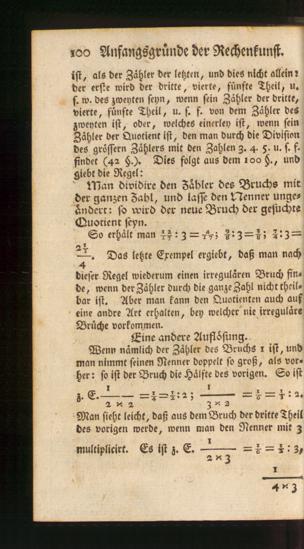 100 Anfangsgründe der Rechenkunst.
ist, als der Zähler der letzten, und dies nicht allein:
der erste wird der dritte, vierte, fünfte Theil, u.
s. w. des zweyten seyn, wenn sein Zähler der dritte,
vierte, fünfte Theil, u. s. f. von dem Zähler des
zweyten ist, oder, welches einerley ist, wenn sein
Zähler der Quotient ist, den man durch die Division
des grössern Zählers mit den Zahlen 3. 4. 5. u. s. f.
findet (42 §.). Dies folgt aus dem 100 §., und
giebt die Regel:
Man dividire den Zähler des Bruchs mit
der ganzen Zahl, und lasse den Nenner unge-
ändert: so wird der neue Bruch der gesuchte
Quotient seyn.
So erhält man
Das letzte Exempel ergiebt, daß man nach
dieser Regel wiederum einen irregulären Bruch fin-
de, wenn der Zähler durch die ganze Zahl nicht theil-
bar ist. Aber man kann den Quotienten auch auf
eine andre Art erhalten, bey welcher nie irreguläre
Brüche vorkommen.
Eine andere Auflösung.
Wenn nämlich der Zähler des Bruchs 1 ist, und
man nimmt seinen Nenner doppelt so groß, als vor-
her: so ist der Bruch die Hälfte des vorigen. So ist
z. E. 1/(2 × 2) = 1/4 = 1/2 : 2; 1/(3 × 2) = 1/6 = 1/3 : 2.
Man sieht leicht, daß aus dem Bruch der dritte Theil
des vorigen werde, wenn man den Nenner mit 3
multiplicirt. Es ist z. E. 1/(2 × 3) = 1/6 = 1/2 : 3,
1/(4 × 3)